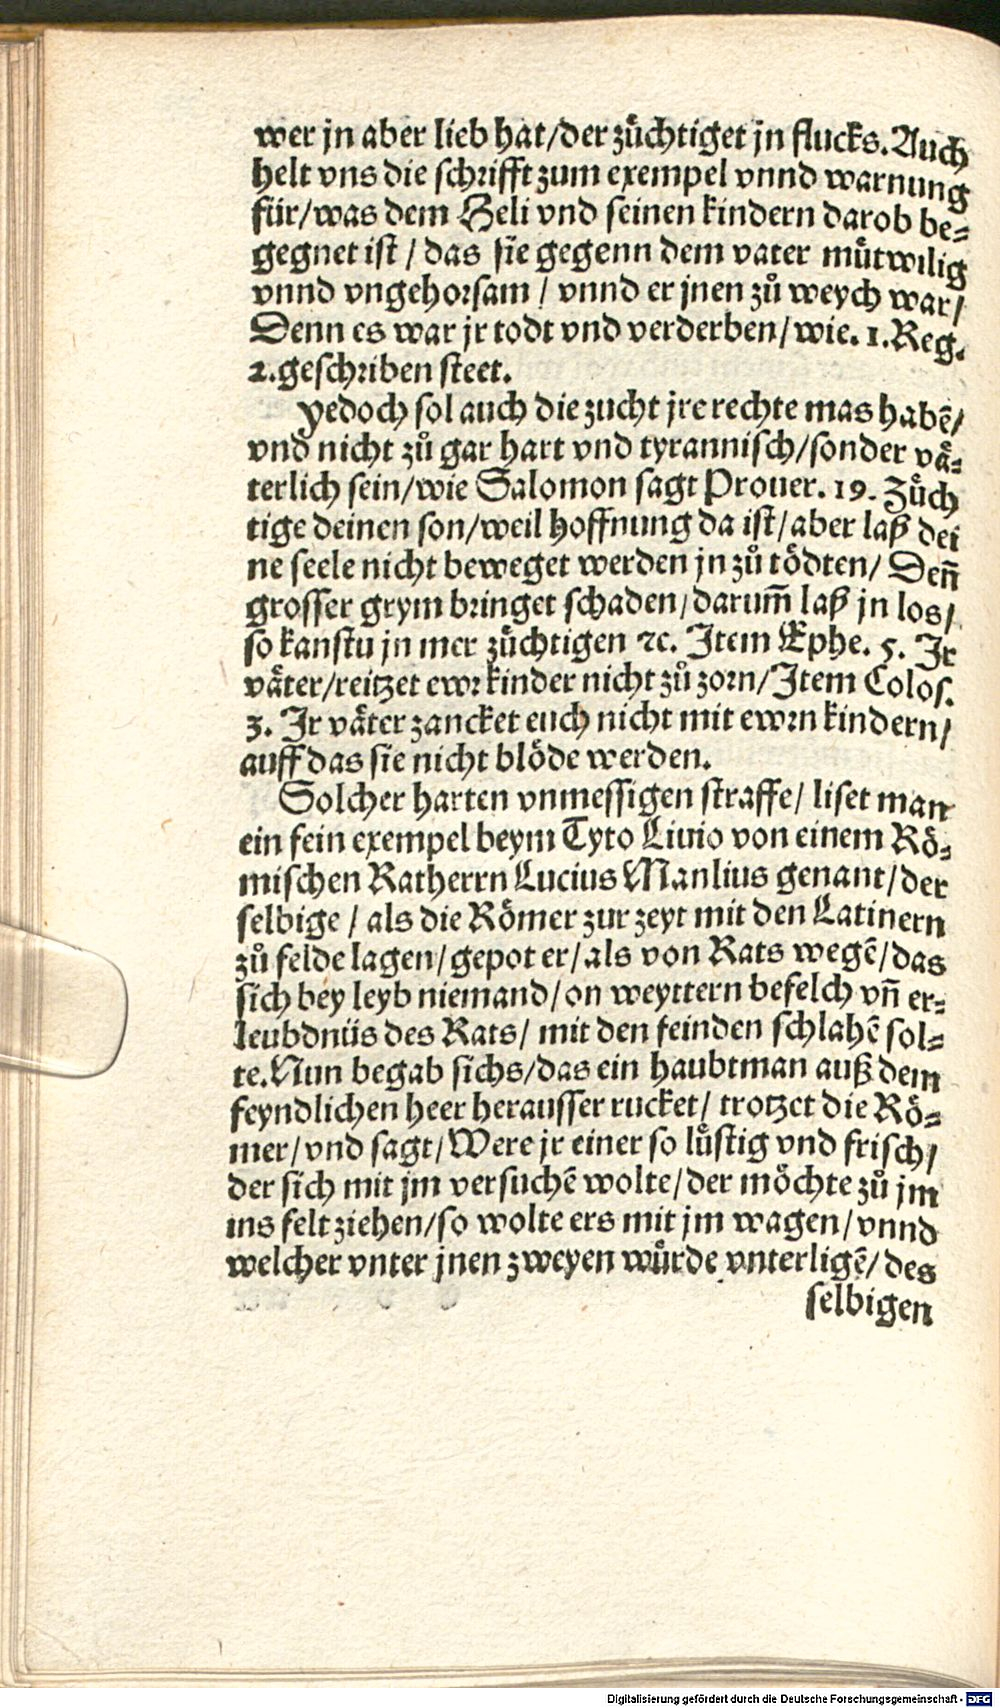 wer jn aber lieb hat/der zuͤchtiget jn flucks. Auch
helt vns die schrifft zum exempel vnnd warnung
für/was dem Heli vnd seinen kindern darob be⸗
gegnet ist / das sie gegenn dem vater muͤtwilig
vnnd vngehorsam / vnnd er jnen zů weych war/
Denn es war jr todt vnd verderben/wie. 1. Reg.
2. geschriben steet.
yedoch sol auch die zucht jre rechte mas habē/
vnd nicht zů gar hart vnd tyrannisch/sonder vaͤ⸗
terlich sein/wie Salomon sagt Prouer. 19. Zuͤch
tige deinen son/weil hoffnung da ist/aber laß dei
ne seele nicht beweget werden jn zů toͤdten/ Deñ
grosser grym bringet schaden/darum̃ laß jn los/
so kanstu jn mer zuͤchtigen ⁊c. Item Ephe. 5. Ir
vaͤter/reitzet ewr kinder nicht zů zorn/Item Colos.
3. Ir vaͤter zancket euch nicht mit ewrn kindern/
auff das sie nicht bloͤde werden.
Solcher harten vnmessigen straffe/ liset man
ein fein exempel beym Tyto Liuio von einem Roͤ⸗
mischen Ratherrn Lucius Manlius genant/der
selbige / als die Roͤmer zur zeyt mit den Latinern
zů felde lagen/gepot er/als von Rats wegē/das
sich bey leyb niemand/on weyttern befelch vñ er⸗
leubdnüs des Rats/ mit den feinden schlahē sol⸗
te. Nun begab sichs/das ein haubtman auß dem
feyndlichen heer herausser rucket/ trotzet die Roͤ⸗
mer/vnd sagt/Were jr einer so luͤstig vnd frisch/
der sich mit jm versuchē wolte/der moͤchte zů jm
ins felt ziehen/so wolte ers mit jm wagen/vnnd
welcher vnter jnen zweyen wuͤrde vnterligē/des
selbigen
Digitalisierung gefördert durch die Deutsche Forschungsgemeinschaft - DFG